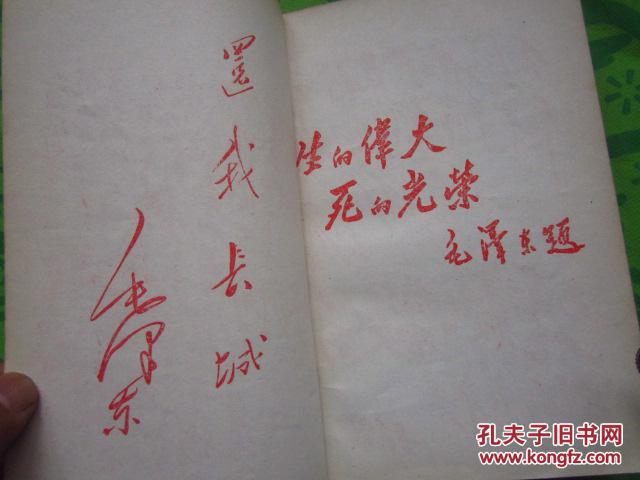 還我長城
毛泽东
生的偉大
死的光榮
毛澤东题
孔夫子旧书网
www.kongfz.com